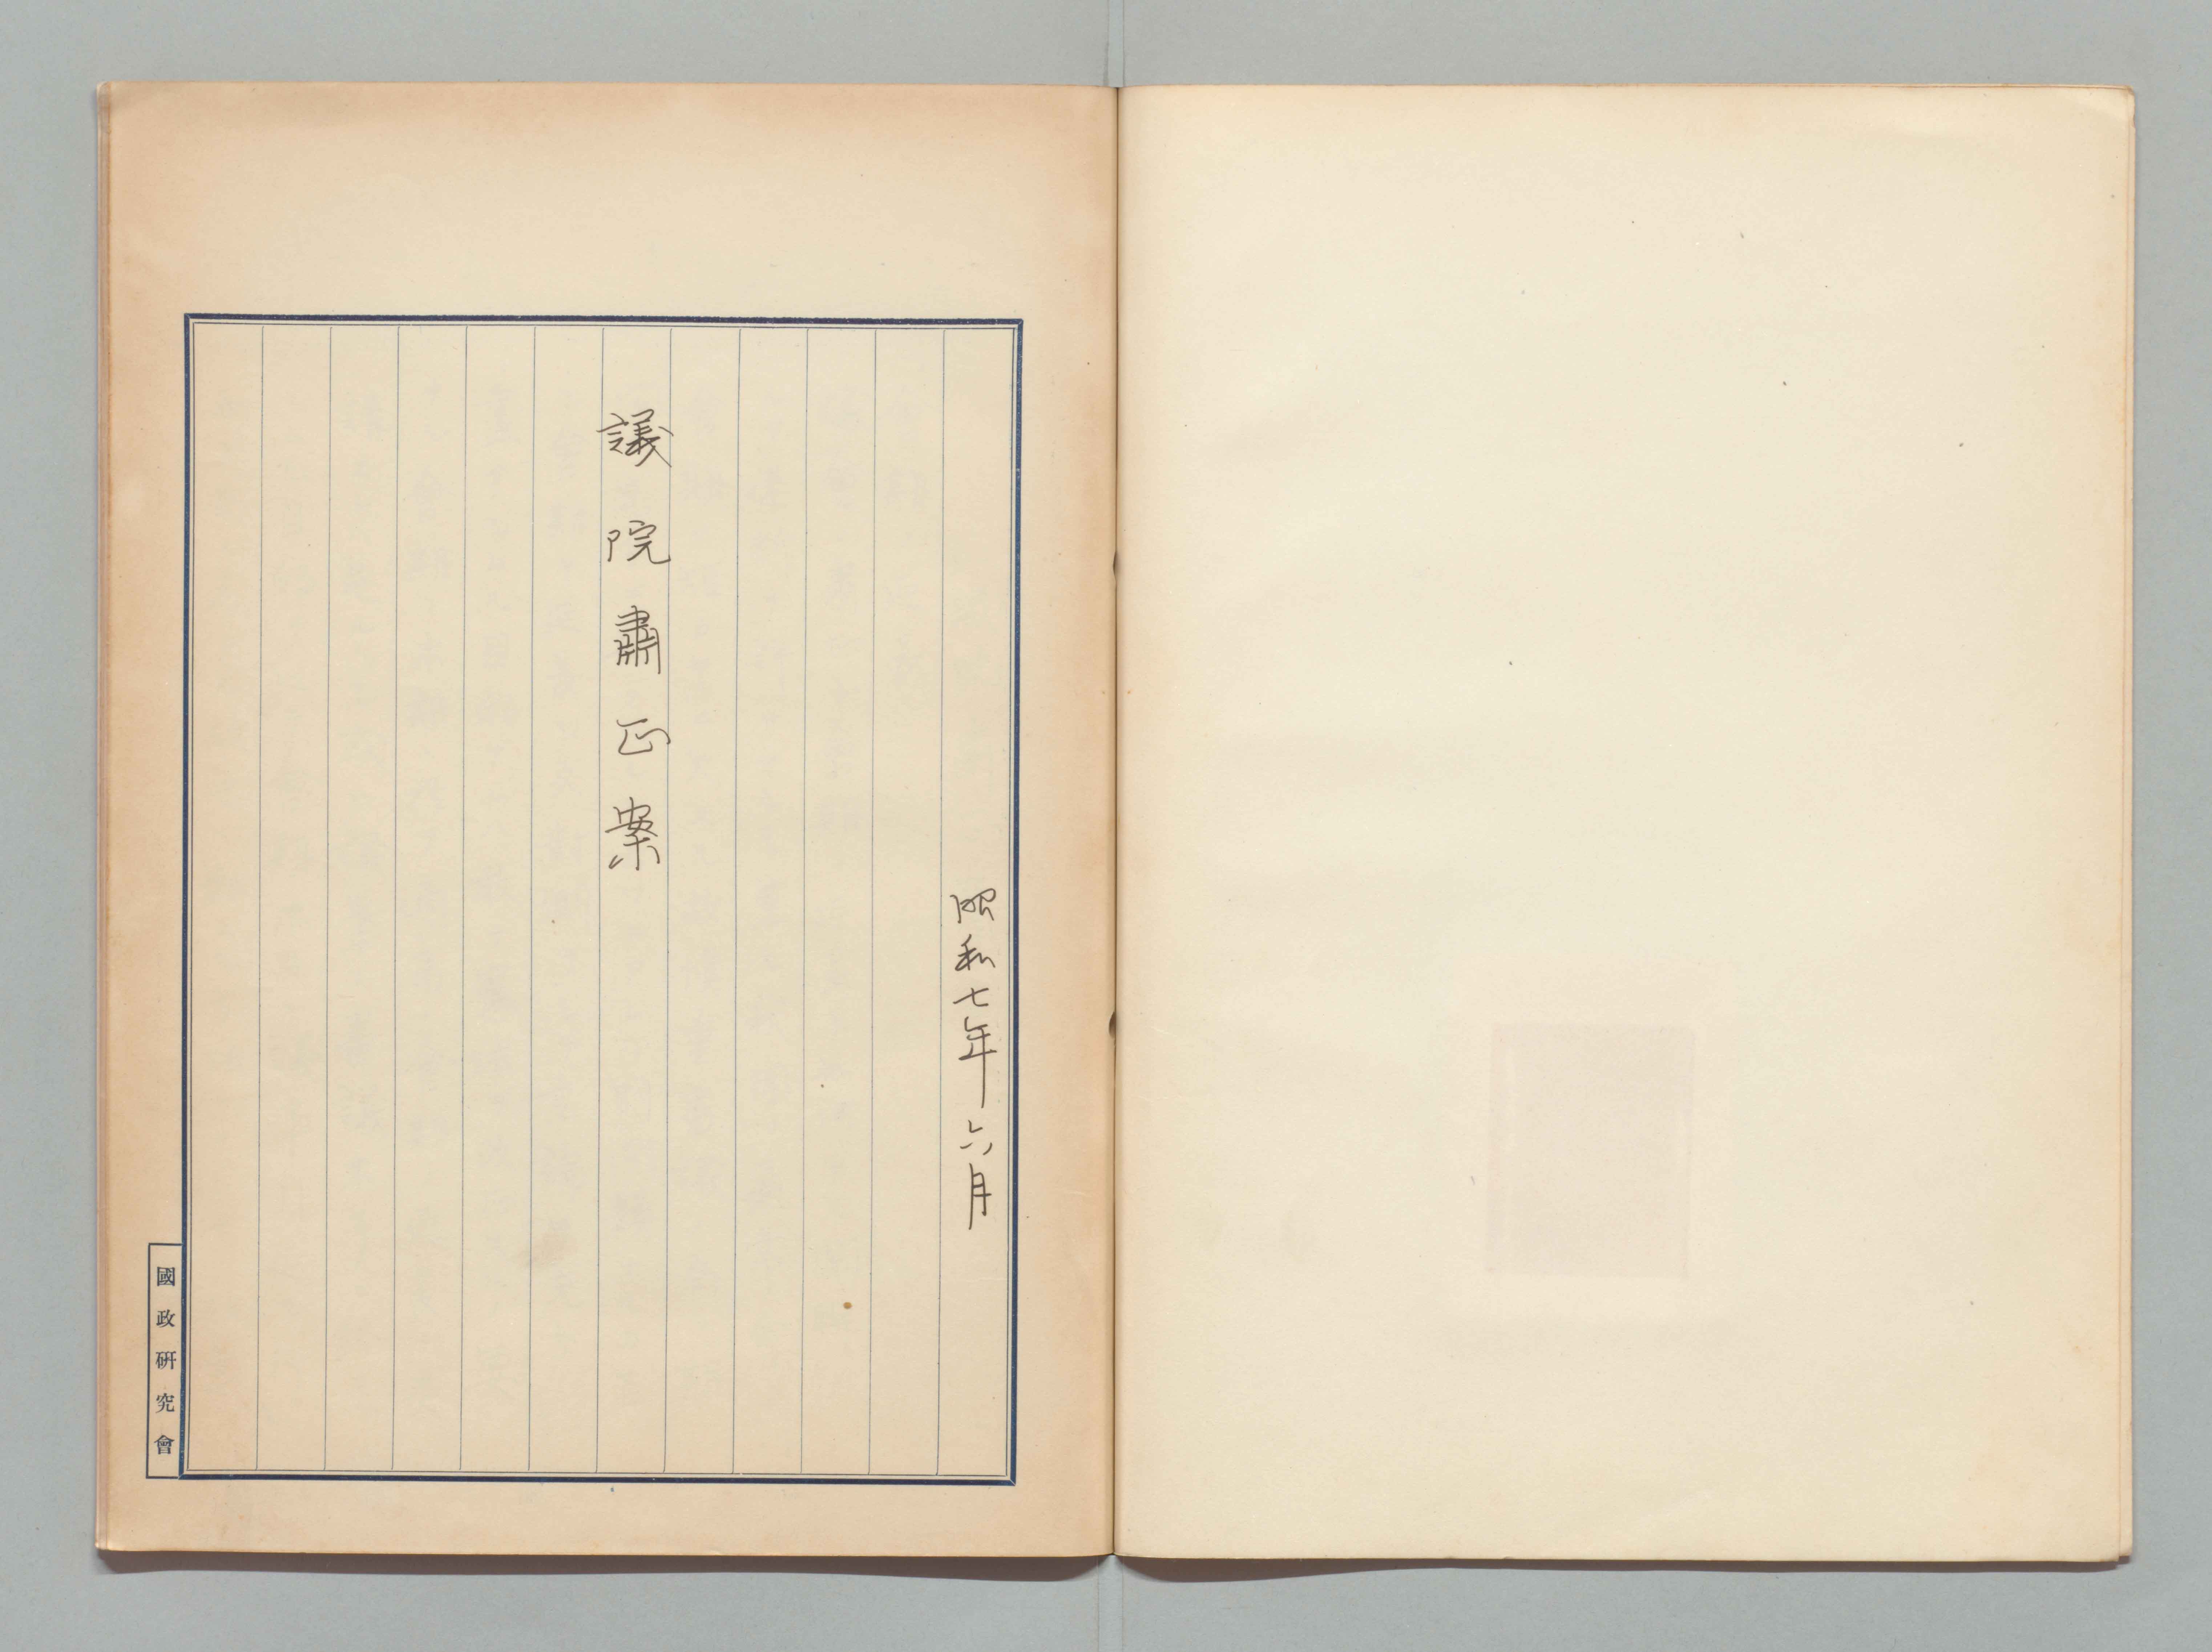 昭和七年六月
議院肅正案
國政硏究會